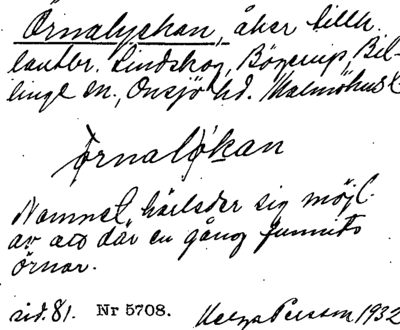 Örnalyckan, åker tillh.
lantbr. Lindskog, Bögerup, Bil-
linge sn., Onsjö hd. Malmöhus l.
ørnaløkan
Namnet härleder sig möjl.
av att där en gång funnits
örnar.
sid. 81. Nr 5708. Persson 1932